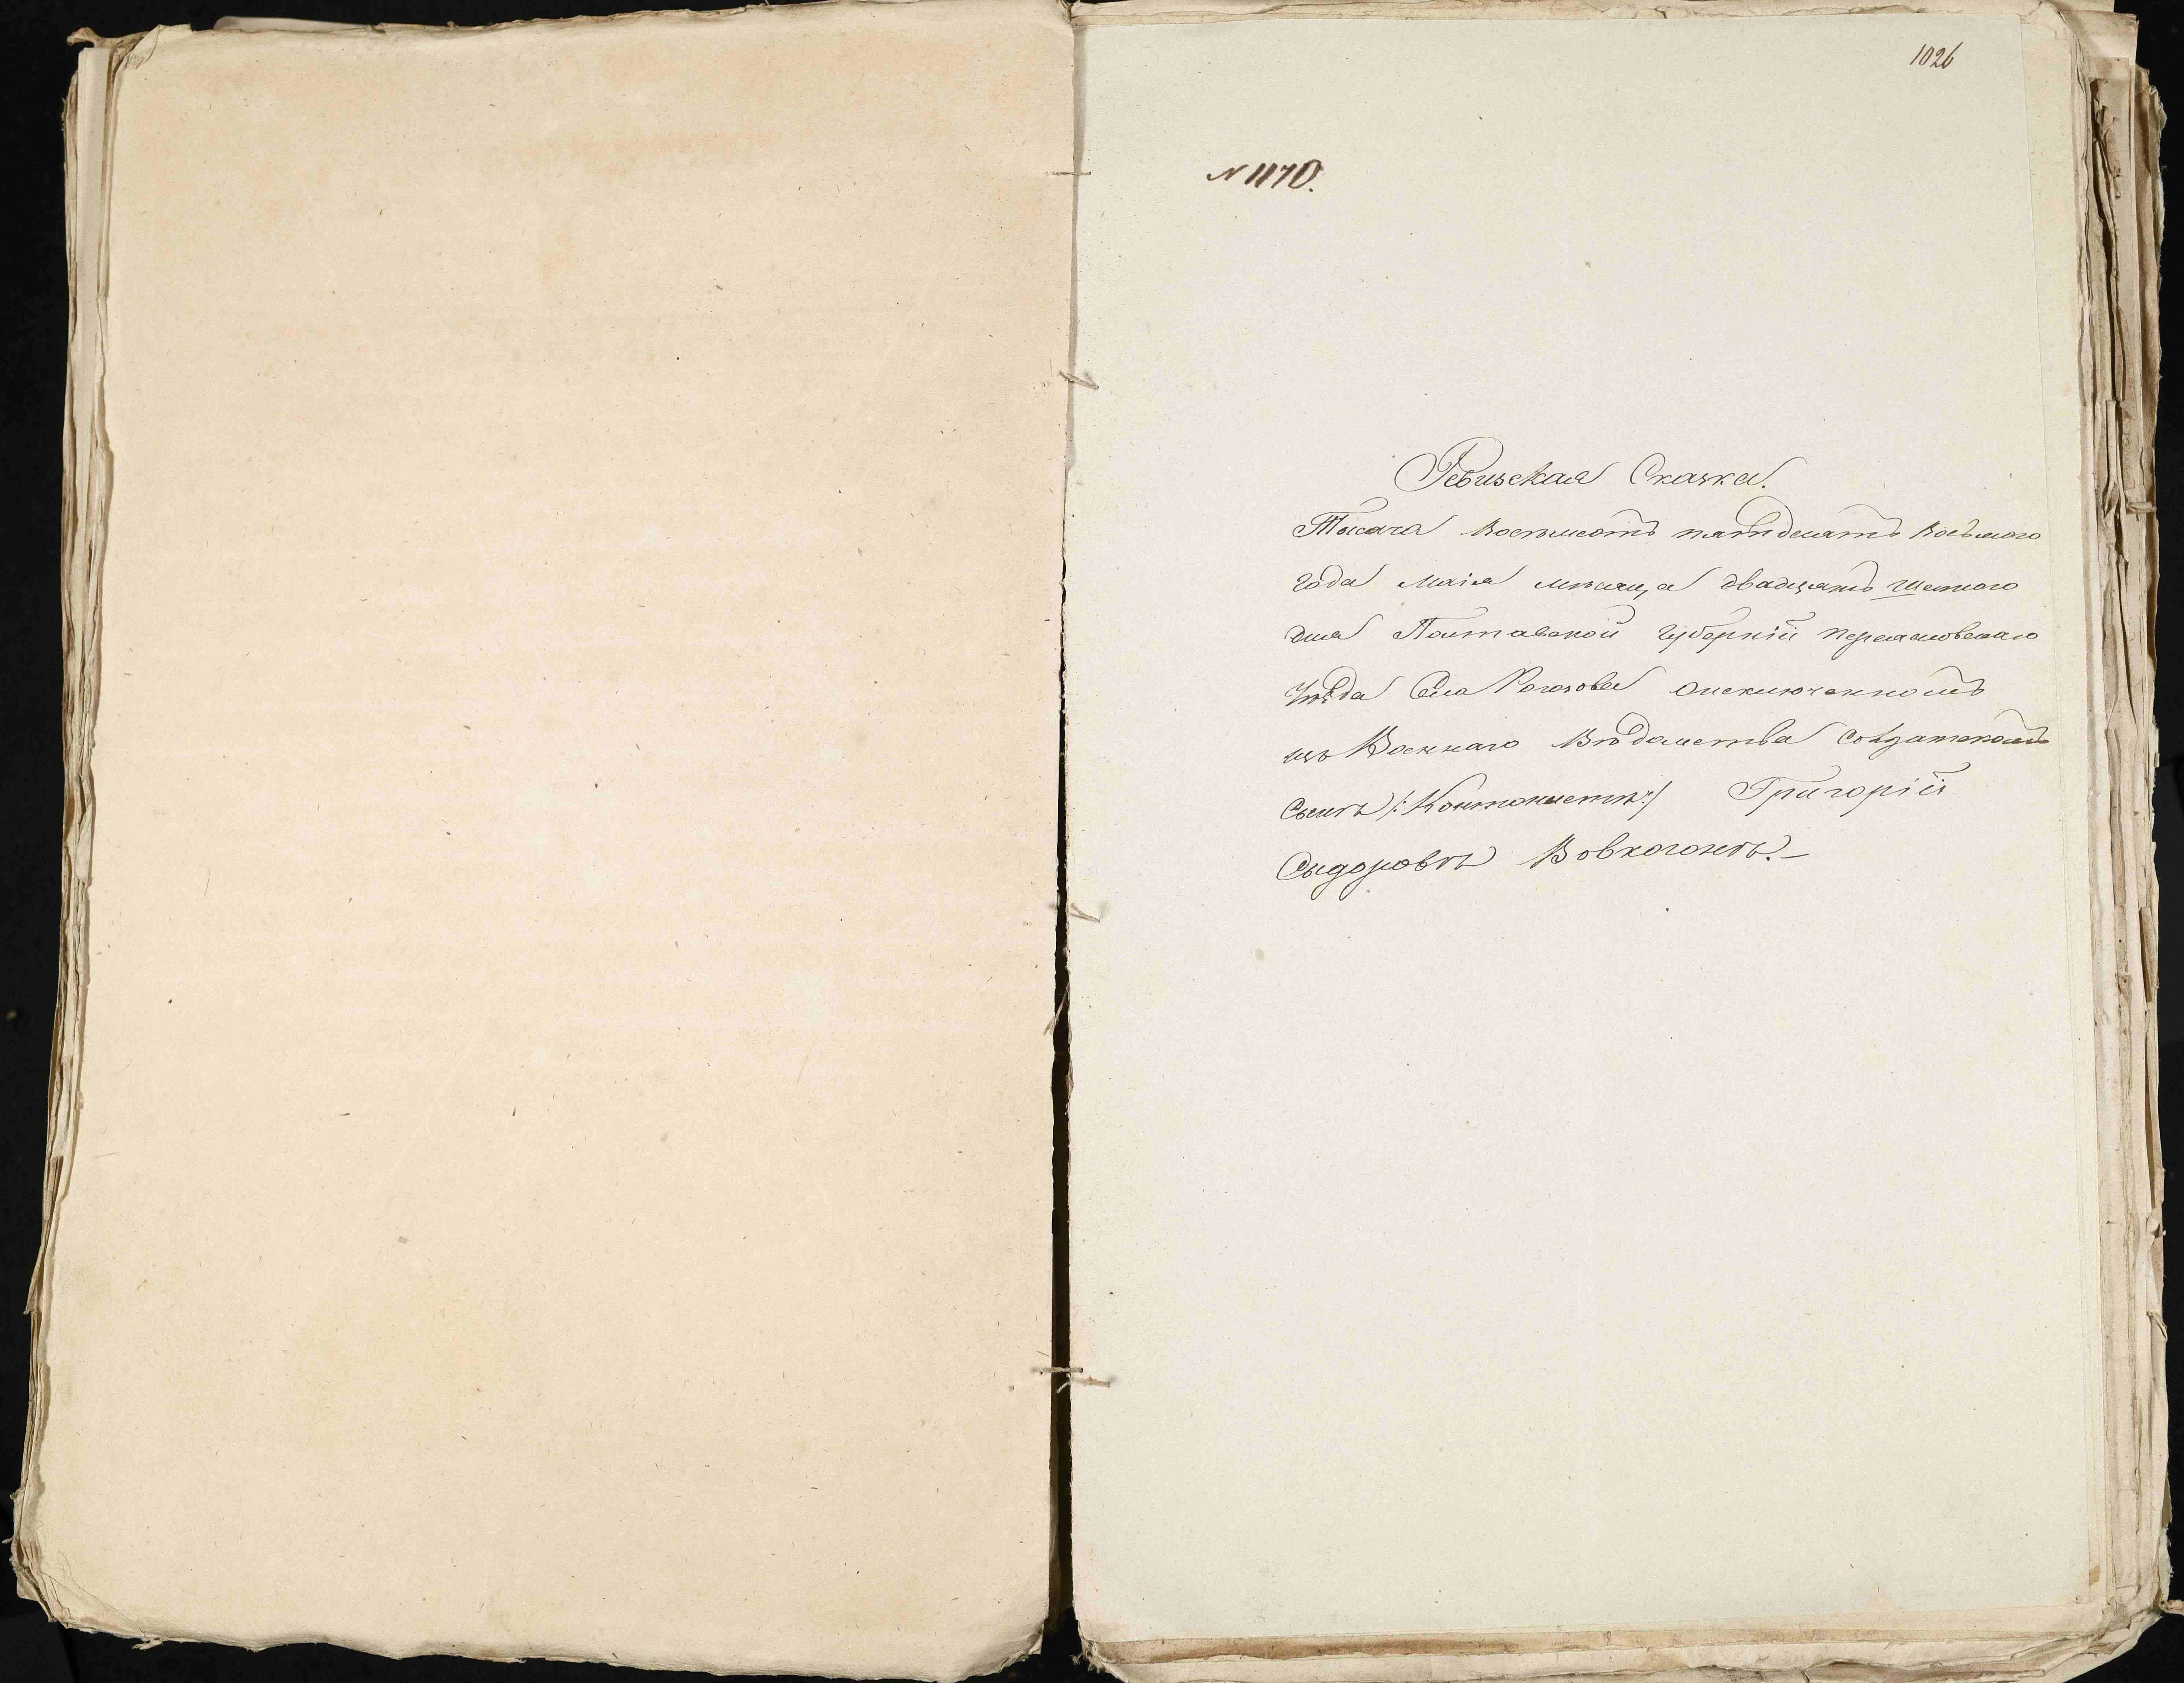 1026
N 1170.
Ревизская Сказка.
Тысяча восемьсотъ пятьдесятъ восьмаго
года маія мѣсяца двадцять шестого
дня Полтавской губерніи переяславскаго
уѣзда Села Рогозова о исключенномъ
изъ Военнаго Вѣдомства солдатскомъ
Сынѣ /:Контонистѣ:/ Григорій
Сидоровъ Вовкогонъ.—